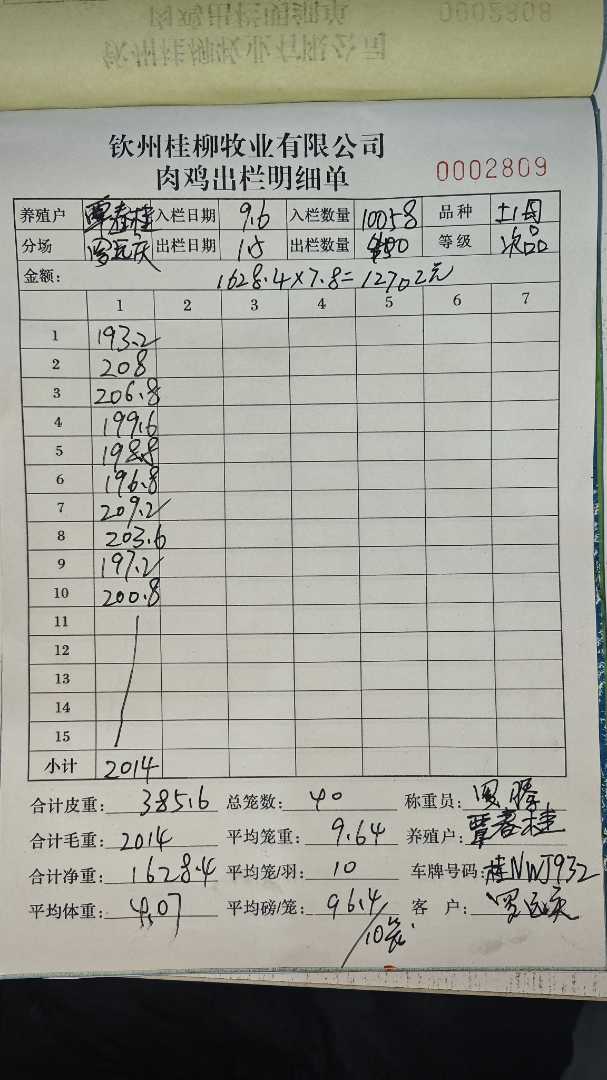 0002808
钦州桂柳牧业有限公司
肉鸡出栏明细单
0002809
养殖户 覃春桂 入栏日期 9.6 入栏数量 10058 品种 土1周
分场 罗远庆 出栏日期 出栏数量 等级 次品
金额： 1628.4×7.8=12702元
1 2 3 4 5 6 7
1 193.2
2 208
3 206.8
4 199.6
5 198.8
6 196.8
7 209.2
8 203.6
9 197.2
10 200.8
11
12
13
14
15
小计 2014
合计皮重： 385.6 总笼数： 40 称重员：
合计毛重： 2014 平均笼重： 9.64 养殖户： 覃春桂
合计净重： 1628.4 平均笼/羽： 10 车牌号码： 桂NWJ932
平均体重： 4.07 平均磅/笼： 96.4 客 户： 罗远庆
/10笼